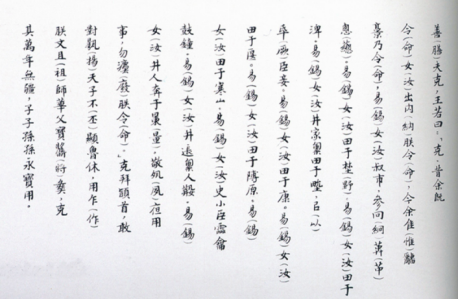 善(膳)夫克,王若曰:"克,昔余既
令(命)女(汝)出内(納)朕令(命),今余隹(惟)
乃令(命),易(錫)女(汝)叔巿,参冋(絅)
悤(蔥)。易(錫)女(汝)田于埜(野),易(錫)女(汝)田于
渒。易(錫)女(汝)井家田于,㠯(以)
厥臣妾。易(錫)女(汝)田于康。易(錫)女(汝)
田于匽。易(錫)女(汝)田于原。易(錫)
女(汝)田于寒山。易(錫)女(汝)史小臣霝龠
鼓鐘。易(錫)女(汝)井人。易(錫)
女(汝)井人奔于量。敬夙(夙)夜用
事,勿灋(廢)朕令(命)。"克拜頴首,敢
對揚天子不(丕)顯魯休,用乍(作)
朕文且(祖)師華父寶彝,克
其萬年無疆,子子孫孫永寶用。